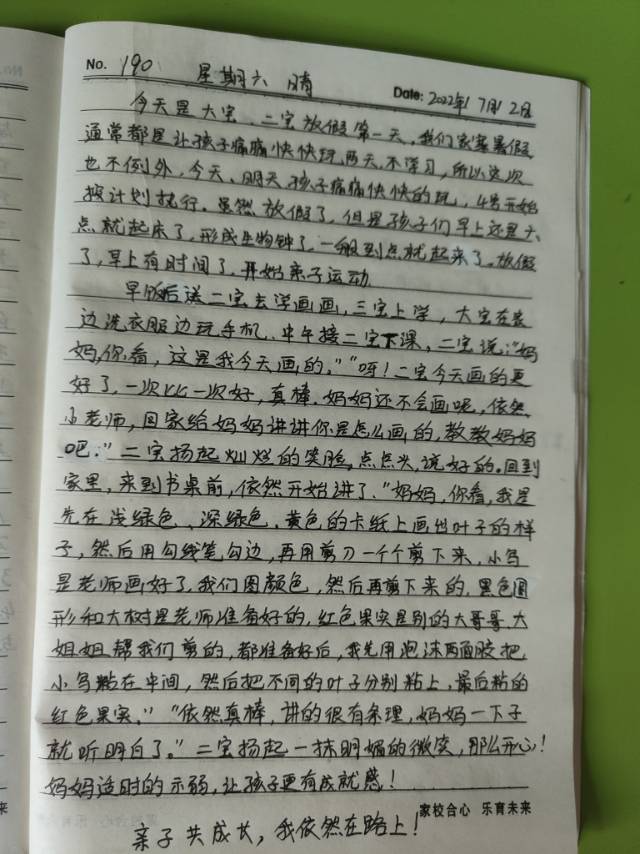 No. 190 星期六 晴 Date: 2022年7月2日
今天是大宝、二宝放假第一天,我们家寒暑假
通常都是让孩子痛痛快快玩两天,不学习,所以这次
也不例外,今天、明天孩子痛痛快快的玩,4号开始
按计划执行。虽然放假了,但是孩子们早上还是六
点就起床了,形成生物钟了,一般到点就起来了。放假
了,早上有时间了,开始亲子运动。
早饭后送二宝去学画画,三宝上学,大宝在家
边洗衣服边玩手机。中午接二宝下课,二宝说:“妈
妈,你看,这是我今天画的。”“呀!二宝今天画的更
好了,一次比一次好,真棒。妈妈还不会画呢,依然
小老师,回家给妈妈讲讲你是怎么画的,教教妈妈
吧。”二宝扬起灿烂的笑脸,点点头,说好的。回到
家里,来到书桌前,依然开始讲了,“妈妈,你看,我是
先在浅绿色、深绿色、黄色的卡纸上画出叶子的样
子,然后用勾线笔勾边,再用剪刀一个个剪下来,小鸟
是老师画好了,我们图颜色,然后再剪下来的,黑色圆
形和大树是老师准备好的,红色果实是别的大哥哥、大
姐姐帮我们剪的,都准备好后,我先用泡沫两面胶把
小鸟粘在中间,然后把不同的叶子分别粘上,最后粘的
红色果实。”“依然真棒,讲的很有条理,妈妈一下子
就听明白了。”二宝扬起一抹明媚的微笑,那么开心!
妈妈适时的示弱,让孩子更有成就感!
家校合心 乐育未来
亲子共成长,我依然在路上!